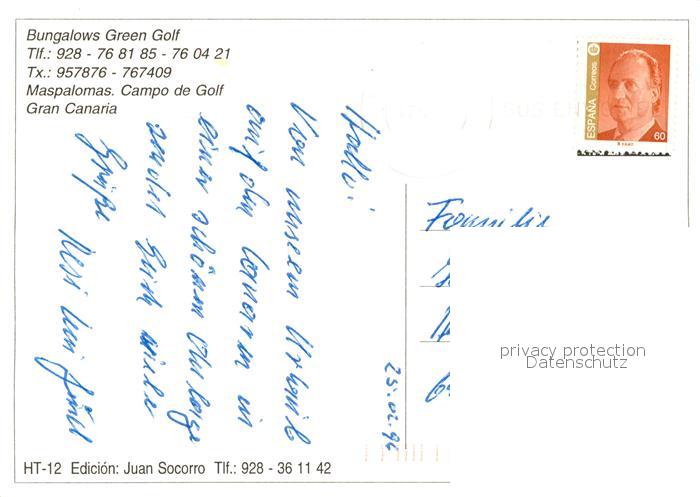 Bungalows Green Golf
Tlf.: 928 - 76 81 85 - 76 04 21
Tx.: 957876 - 767409
Maspalomas. Campo de Golf
Gran Canaria
ESPAÑA
Correos
60
Hallo!
Von unserem Urlaub
auf Gran Canaria in
einer schönen Anlage
sendet Euch viele
Grüße
25.02.96
Familie
privacy protection
Datenschutz
HT-12 Edición: Juan Socorro Tlf.: 928 - 36 11 42